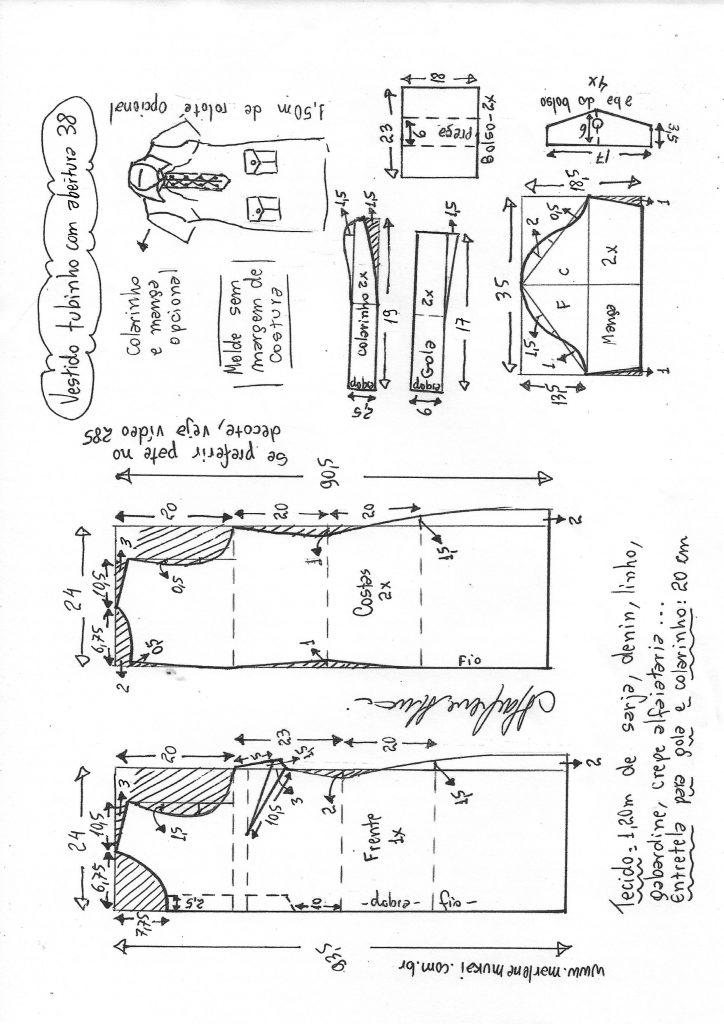 Vestido tubinho com abertura 38
1,50m de rolotê opcional
colarinho
e manga
opcional
Molde sem
margem de
costura
Se preferir pate no
decote, veja vídeo 285
23
18
6
Prega
Bolso-2x
aba do bolso
4x
6
3,5
17
1,5
1,5
colarinho 2x
dobra
2,5
19
1,5
Gola
2x
dobra
6
17
35
18,5
13,5
2
0,5
1,5
1
F
C
Manga
2x
1
1
90,5
24
6,75
10,5
3
2
0,5
0,5
20
20
20
1
1
1,5
Costas
2x
Fio
2
93,5
24
6,75
10,5
3
7,75
2,5
1,5
20
23
20
1,5
1,5
10,5
3
2
10
1,5
Frente
1x
-dobra-
-fio-
2
www.marlenemukai.com.br
Tecido=1,20m de sarja, denin, linho,
gabardine, crepe alfaiataria...
Entretela para gola e colarinho: 20 cm